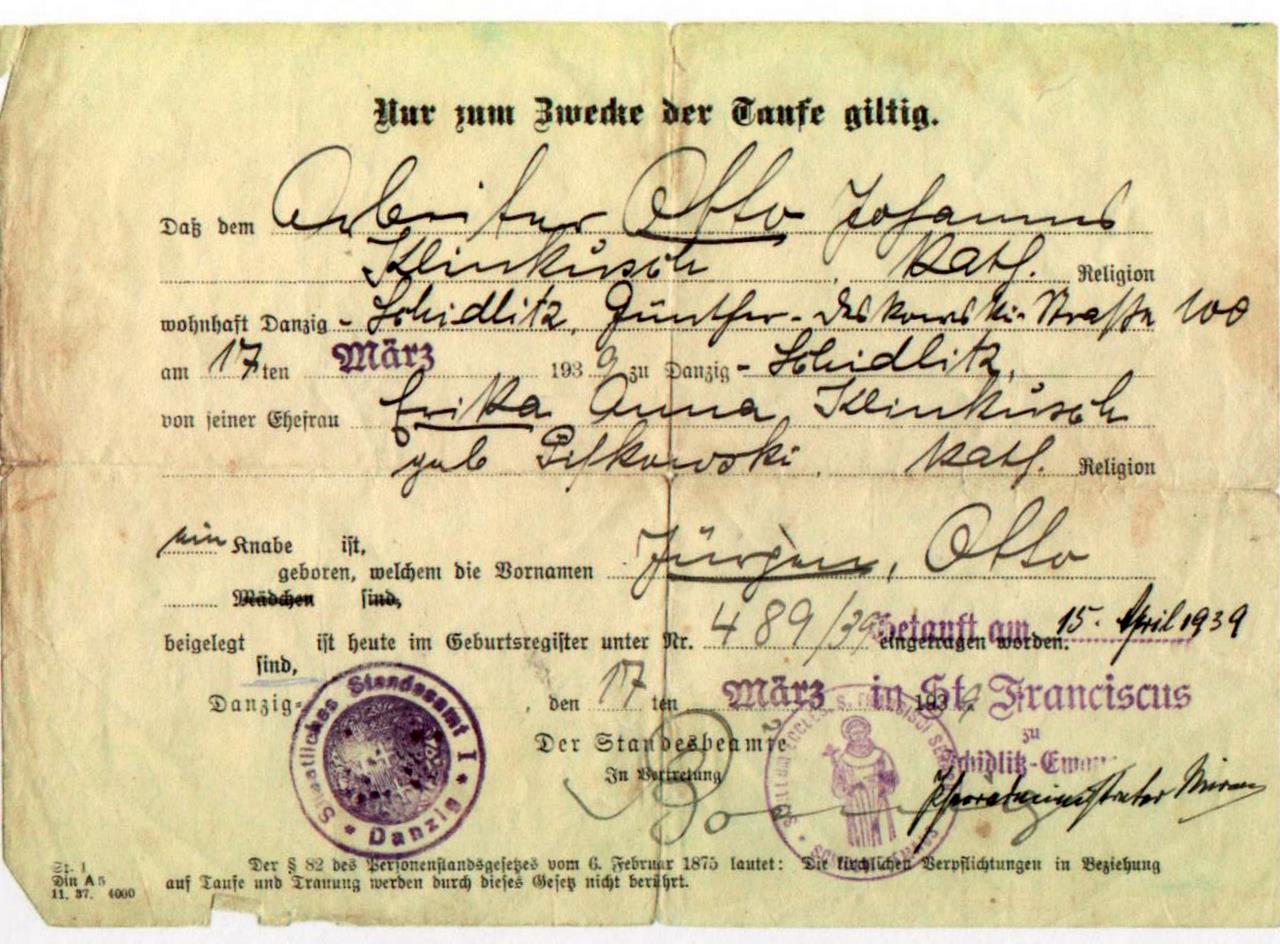 Nur zum Zwecke der Taufe giltig.
Daß dem Arbeiter Otto Johannes
Klinkusch, kath. Religion
wohnhaft Danzig - Schidlitz, Günther-Deskowski-Straße 100
am 17ten März 1939 zu Danzig - Schidlitz,
von seiner Ehefrau Erika Anna Klinkusch
geb. kath. Religion
ein Knabe ist,
geboren, welchem die Vornamen Jürgen, Otto
Mädchen sind,
beigelegt ist heute im Geburtsregister unter Nr. 489/39 eingetragen worden.
sind,
Getauft am 15. April 1939
Danzig- , den 17 ten März 1939
in St. Franciscus
zu
Schidlitz-
Der Standesbeamte
In Vertretung
Pfarradministrator
Staatliches Standesamt I
Danzig
St. 1
Din A 5
11. 37. 4000
Der § 82 des Personenstandsgesetzes vom 6. Februar 1875 lautet: Die kirchlichen Verpflichtungen in Beziehung
auf Taufe und Trauung werden durch dieses Gesetz nicht berührt.